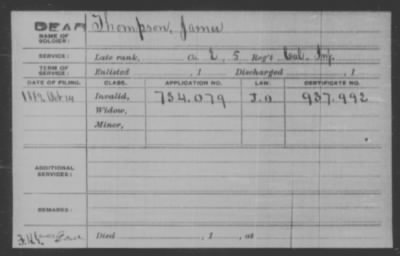 DEAF
NAME OF SOLDIER: Thompson, James
SERVICE: Late rank, Co. E, 5 Reg't Cal. Inf.
TERM OF SERVICE: Enlisted , 1 Discharged , 1
DATE OF FILING. CLASS. APPLICATION NO. LAW. CERTIFICATE NO.
Oct 14 Invalid, 734.079 937.992
Widow,
Minor,
ADDITIONAL SERVICES:
REMARKS:
Died , 1 , at